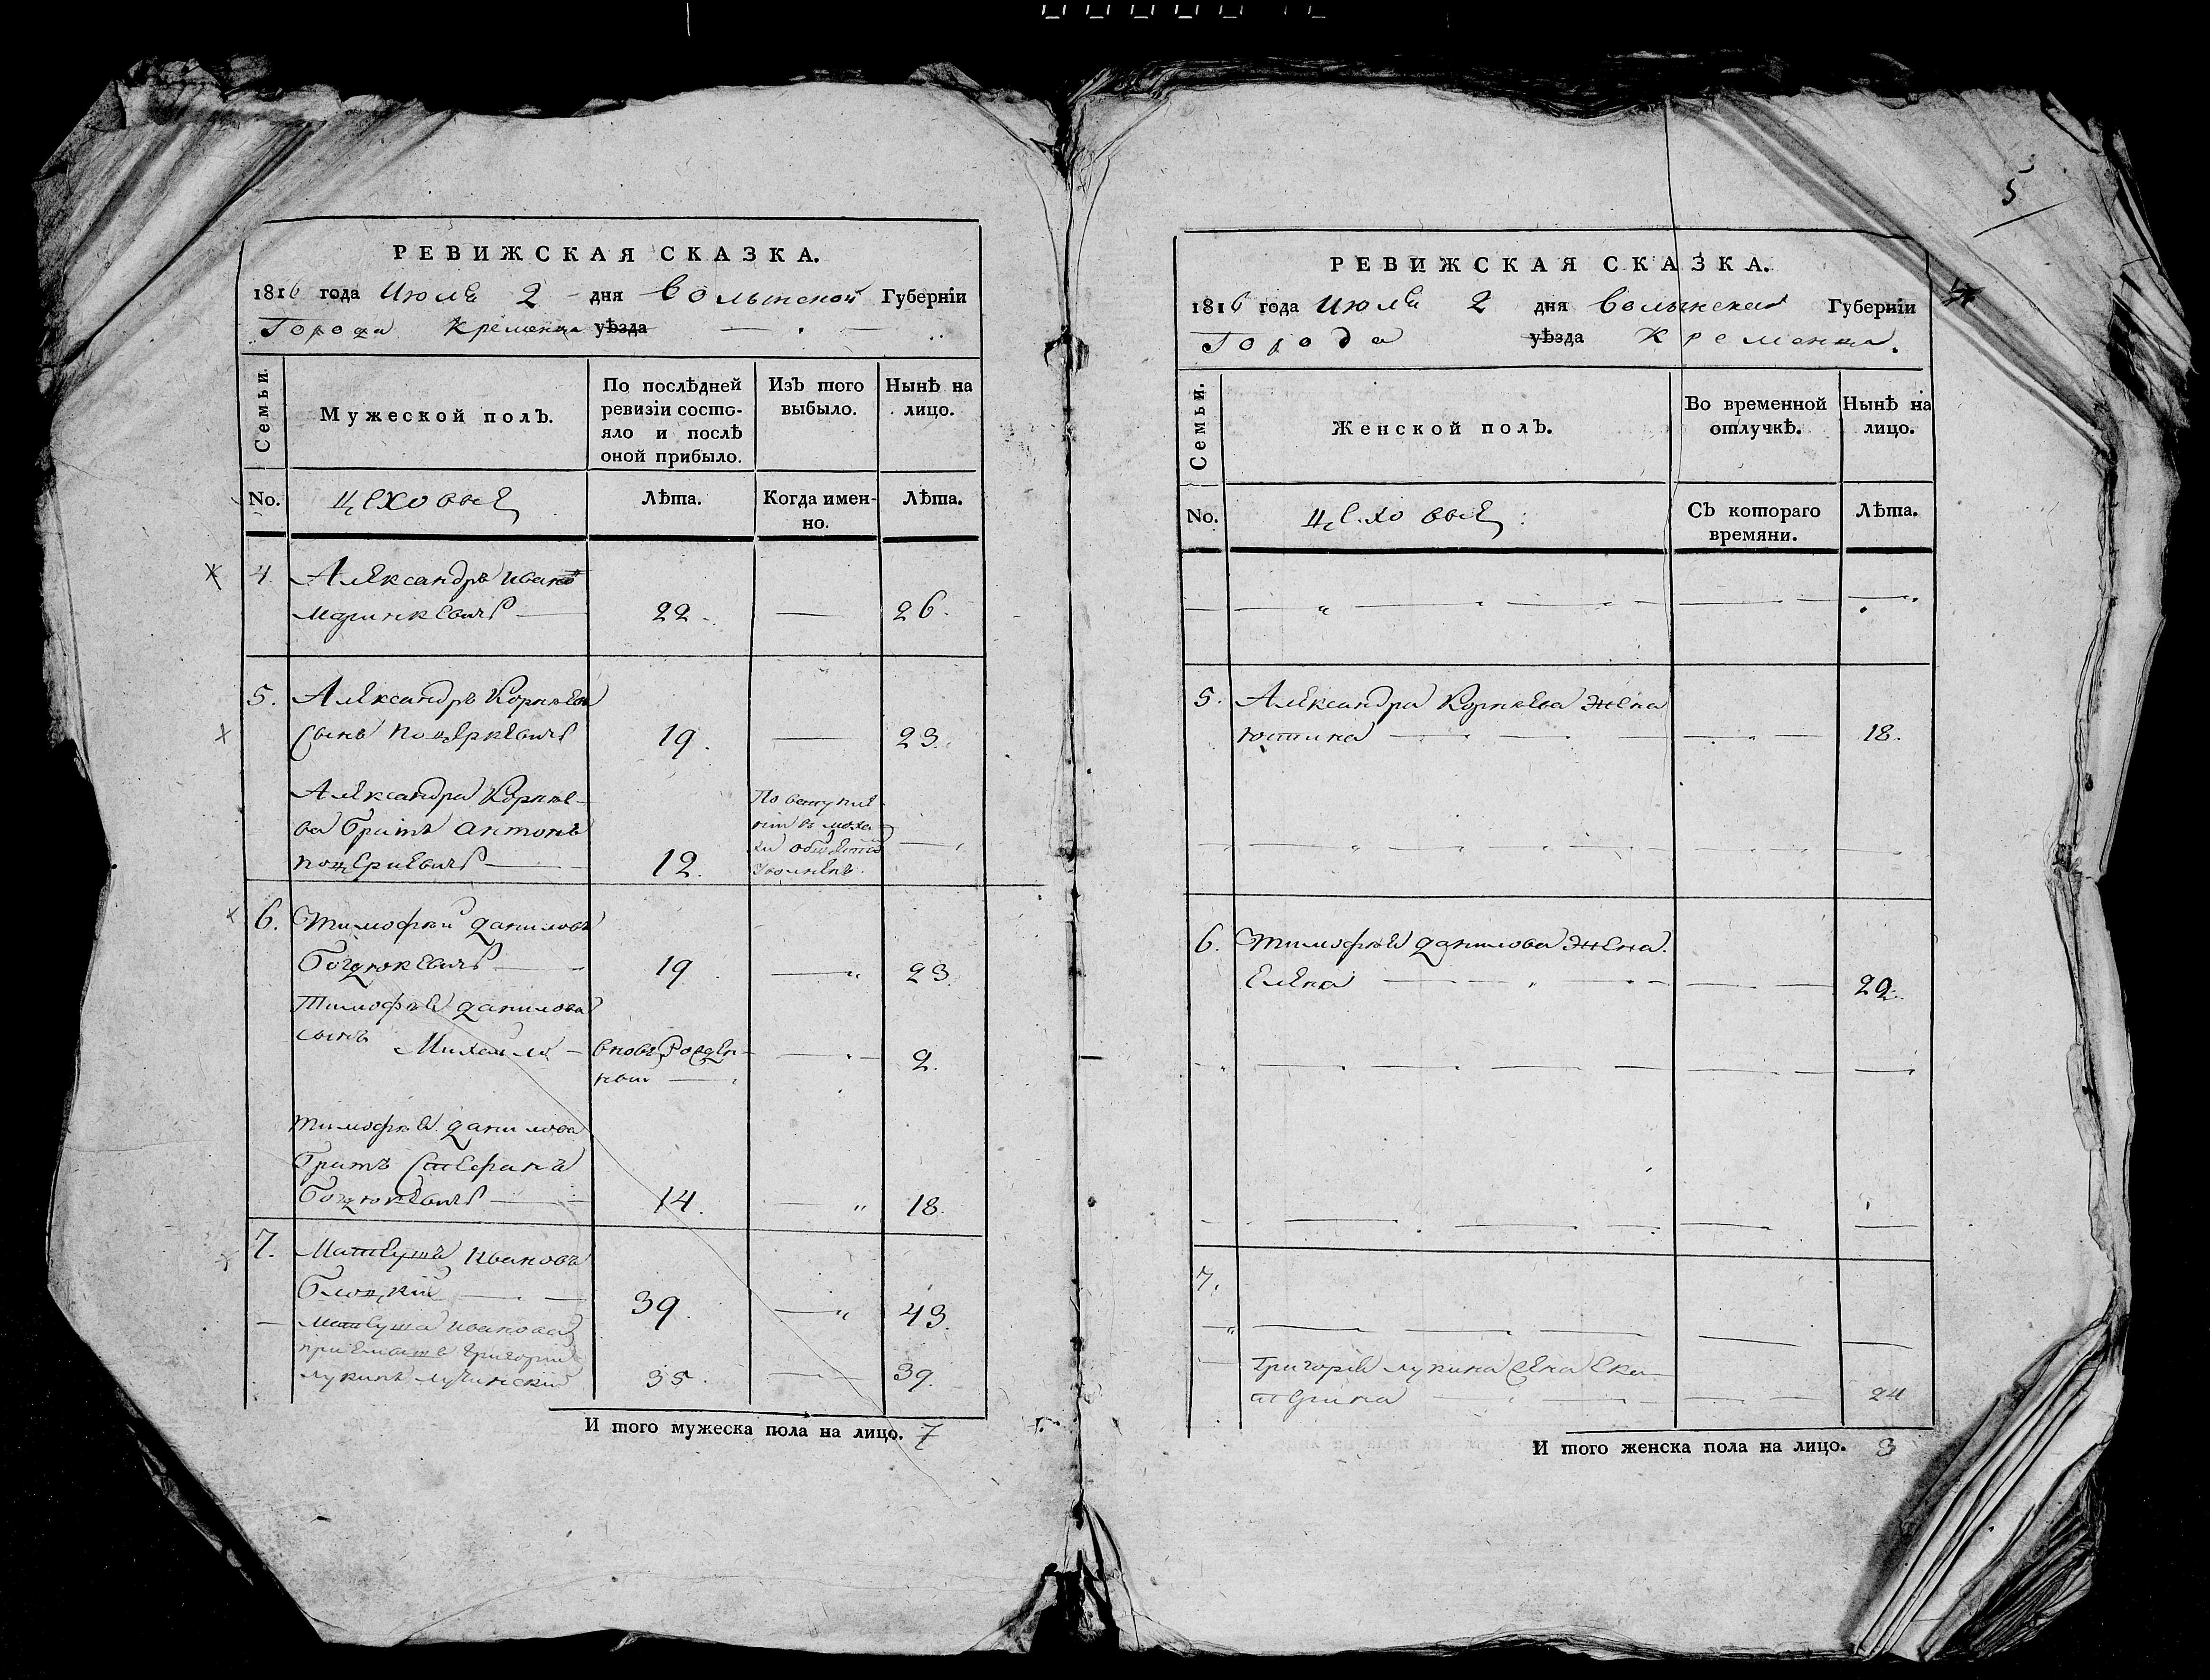 РЕВИЖСКАЯ СКАЗКА.
1816 года Июля 2 дня Волынской Губерніи
Города Кременца уѣзда
Семьи.
Мужеской полъ.
По послѣдней ревизіи состо-
яло и послѣ
оной прибыло.
Изъ того
выбыло.
Нынѣ на
лицо.
No.
Цеховые
Лѣта.
Когда имен-
но.
Лѣта.
4. Александръ Ивановъ
Маринкевичъ 22. 26.
5. Александръ Корнѣевъ
сынъ Поцеркевичъ 19. 23.
Александра Корнѣе-
ва братъ Антонъ
12.
По вступле-
ніи въ
уволненъ.
6. Тимофѣй Даниловъ
Богдюкевичъ 19. 23.
Тимофѣя Данилова
сынъ Михайло вновь рожден-
ный 2.
Тимофѣя Данилова
братъ Стефанъ
Богдюкевичъ 14. 18.
7. Матеушъ Ивановъ
Блоцкій 39. 43.
Матеуша Иванова
пріематъ Григорій
Лукинъ Лучинскій 35. 39.
И того мужеска пола на лицо. 7
5
РЕВИЖСКАЯ СКАЗКА.
1816 года Июля 2 дня Волынской Губерніи
Города уѣзда Кременца.
Семьи.
Женской полъ.
Во временной
отлучкѣ.
Нынѣ на
лицо.
No.
Цеховые
Съ котораго
времяни.
Лѣта.
5. Александра Корнѣева жена
Юстина 18.
6. Тимофѣя Данилова жена
Елена 22.
7.
Григорія Лукина жена Ека-
терина 24
И того женска пола на лицо. 3